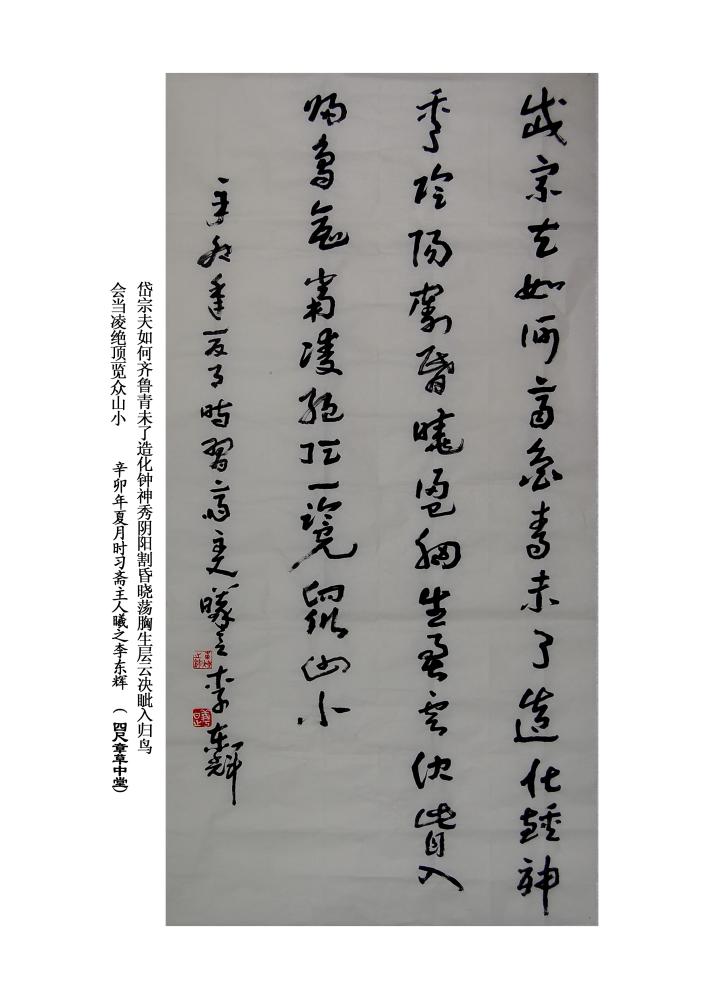 岱宗夫如何齐鲁青未了造化钟神
秀阴阳割昏晓荡胸生层云决眦入
归鸟会当凌绝顶一览众山小
辛卯年夏月时习斋主人曦之李东辉
岱宗夫如何齐鲁青未了造化钟神秀阴阳割昏晓荡胸生层云决眦入归鸟
会当凌绝顶览众山小 辛卯年夏月时习斋主人曦之李东辉 （四尺章草中堂）